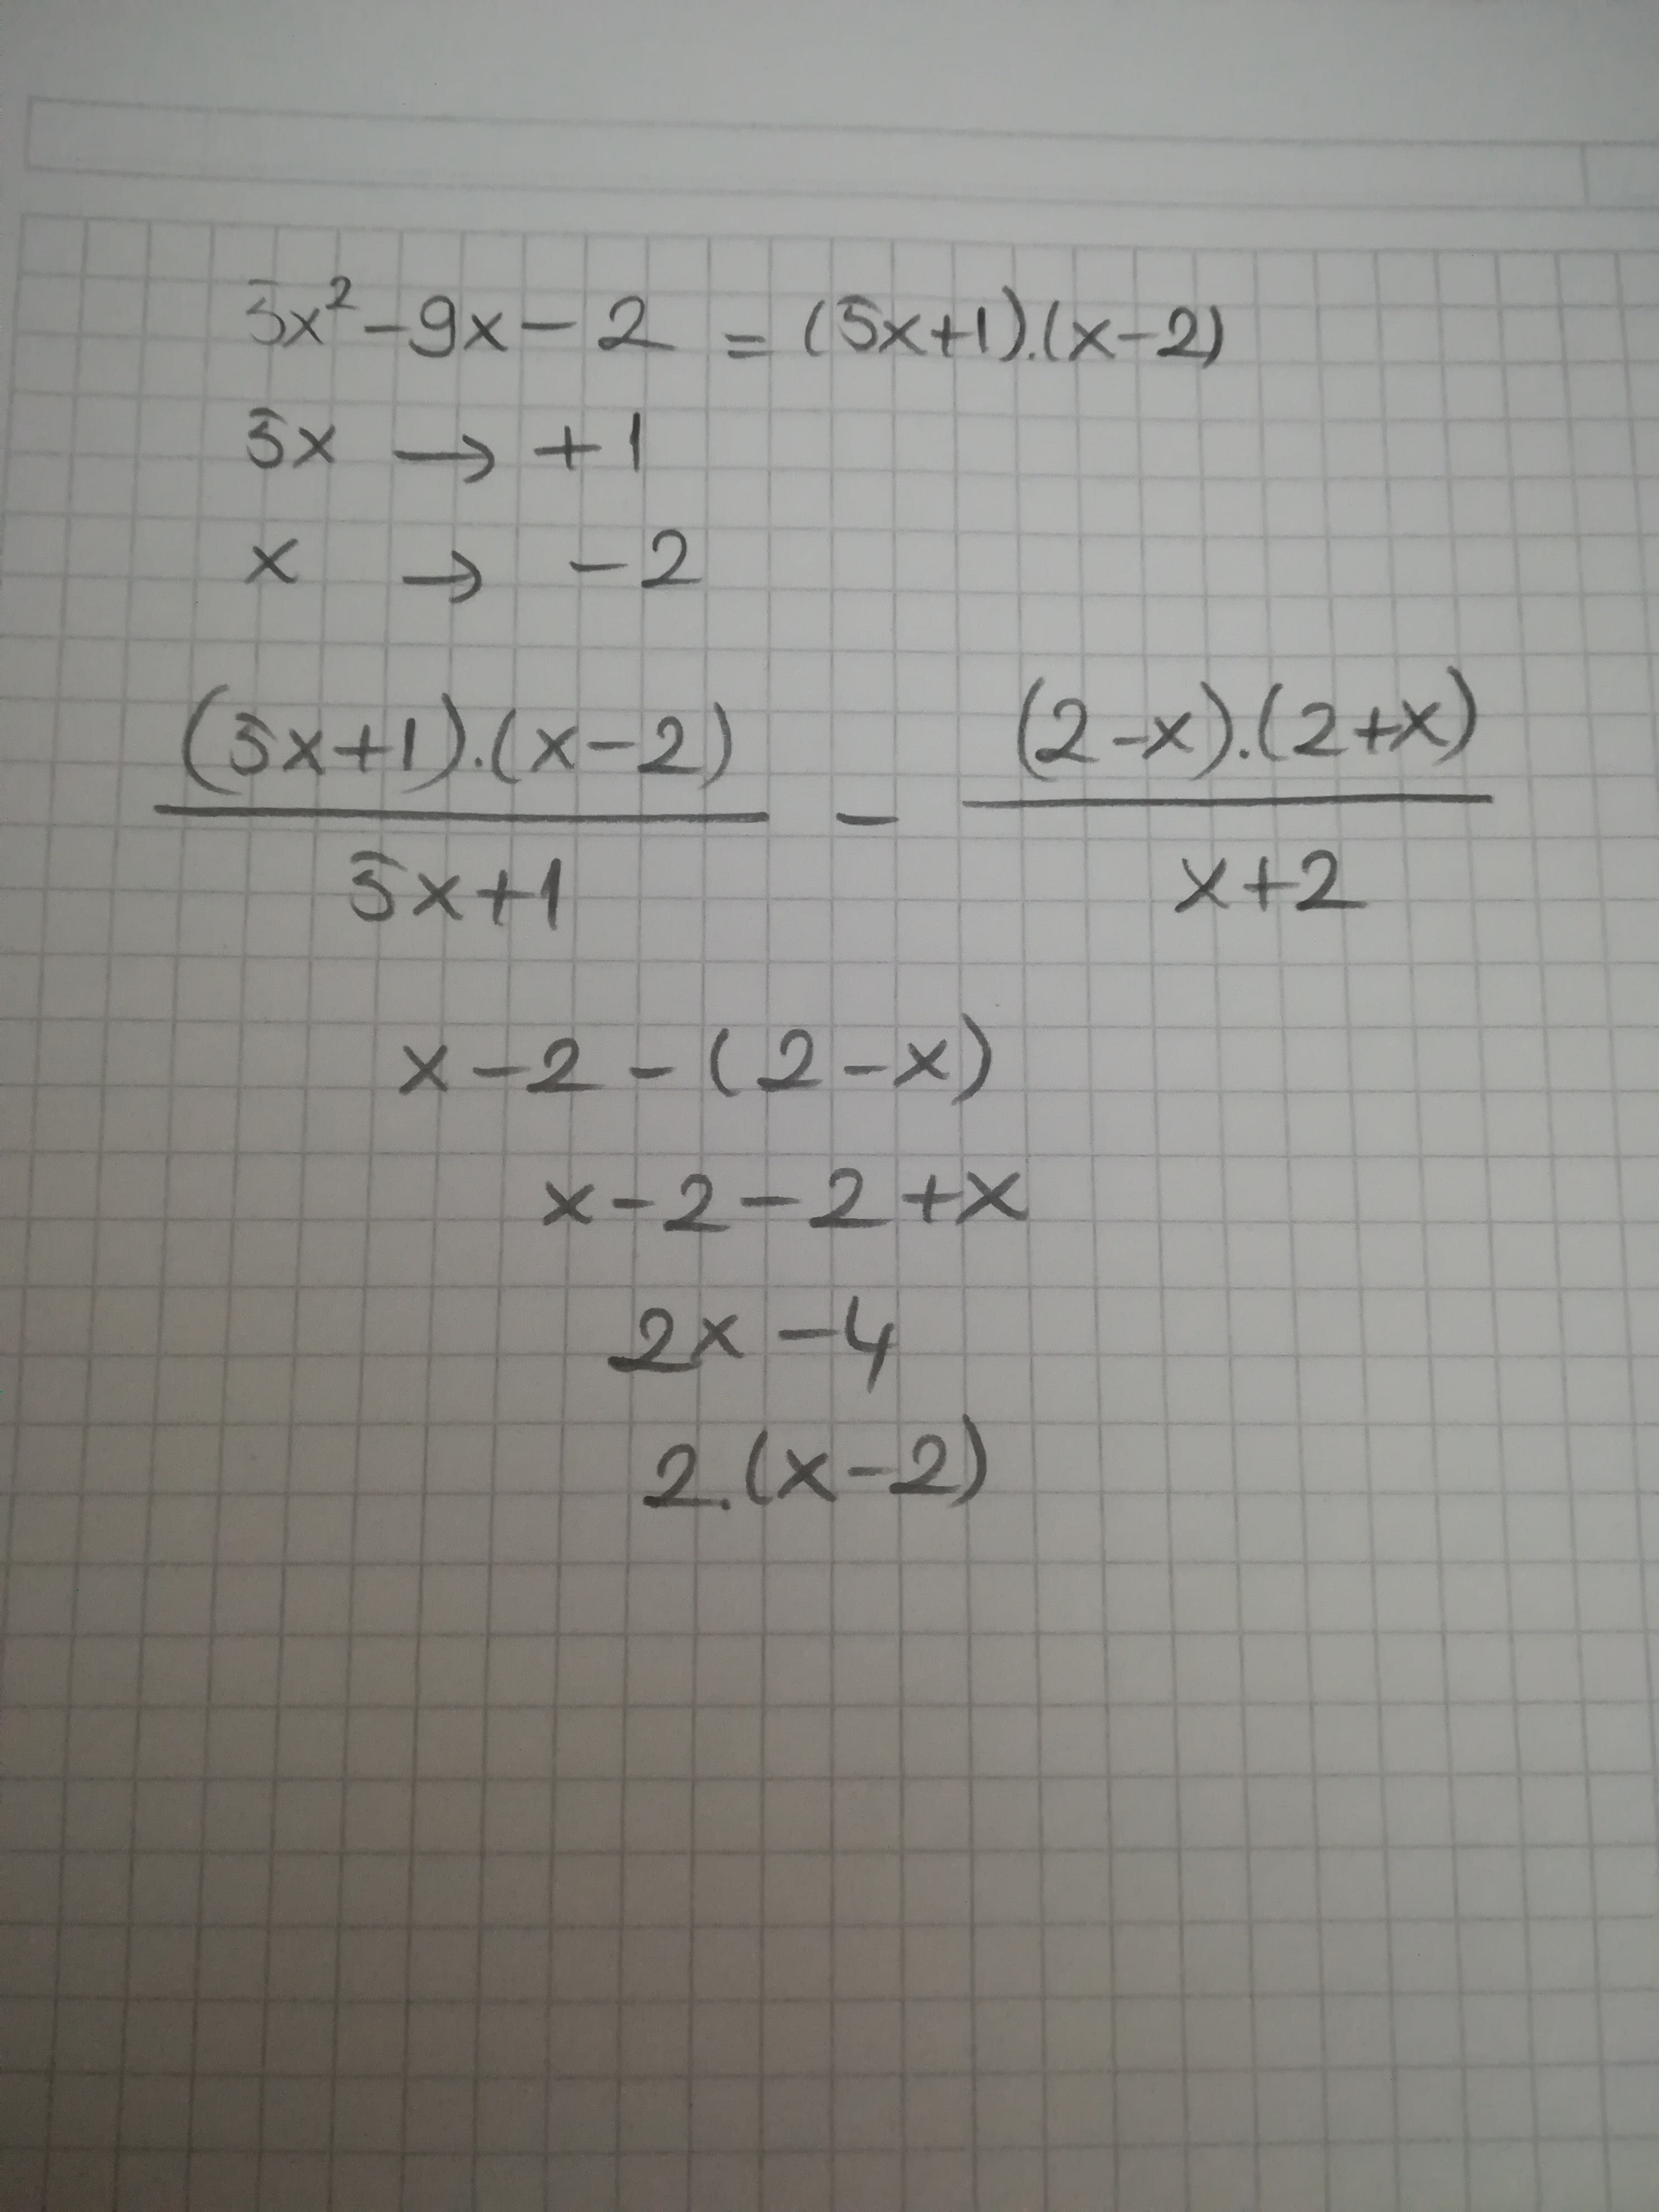 5x² - 9x - 2 = (5x+1).(x-2)
5x → +1
x → -2
(5x+1).(x-2) / 5x+1 - (2-x).(2+x) / x+2
x - 2 - (2 - x)
x - 2 - 2 + x
2x - 4
2.(x-2)